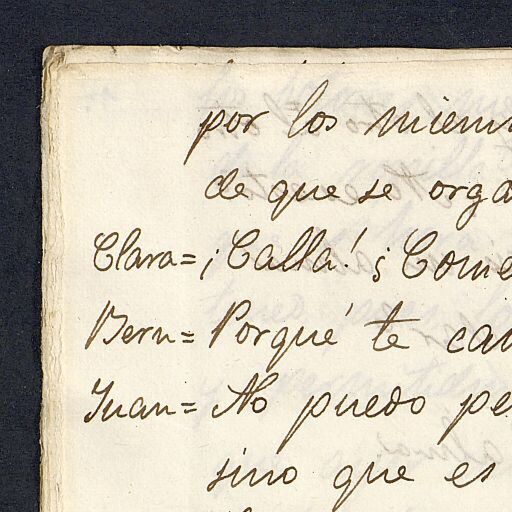 por los miem
de que se orga
Clara= ¡Calla! ¿Come
Bern= Porqué te can
Juan= No puedo pe
sino que es